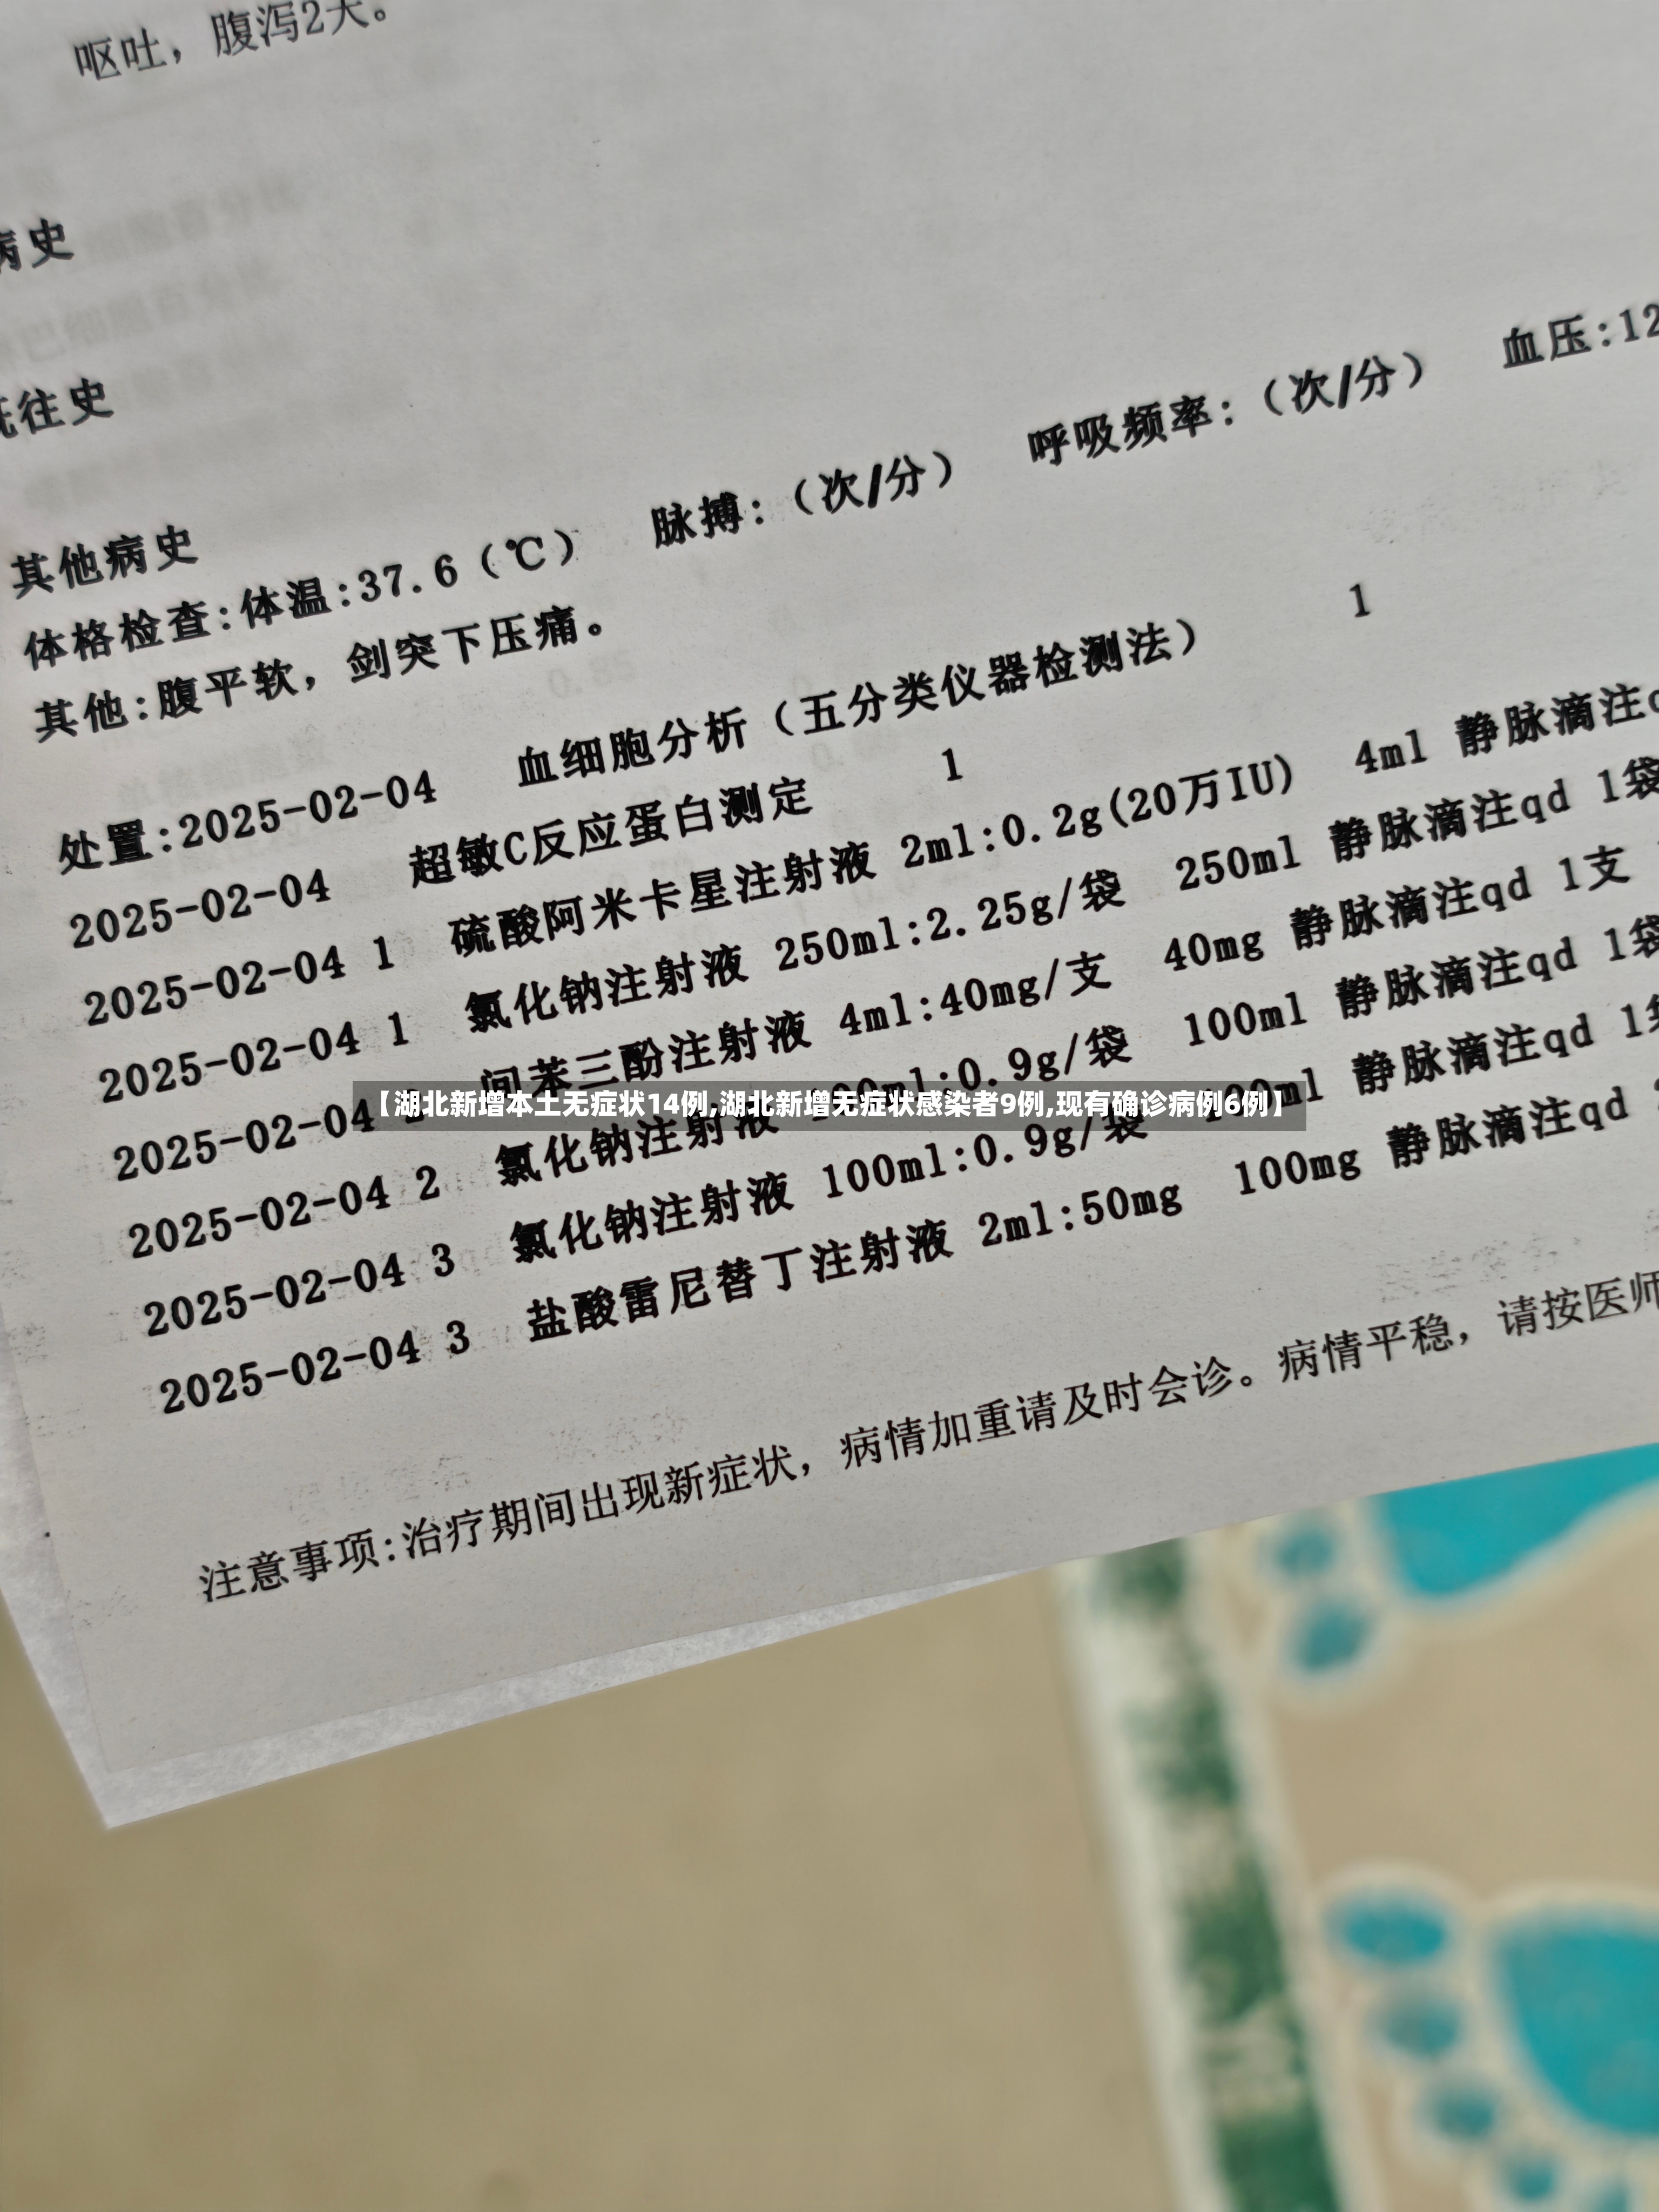 呕吐，腹泻2天。
病史
既往史
其他病史
体格检查:体温:37.6（℃） 脉搏:（次/分） 呼吸频率:（次/分） 血压:12
其他:腹平软，剑突下压痛。
处置:2025-02-04 血细胞分析（五分类仪器检测法） 1
2025-02-04 超敏C反应蛋白测定 1
2025-02-04 1 硫酸阿米卡星注射液 2ml:0.2g(20万IU) 4ml 静脉滴注q
2025-02-04 1 氯化钠注射液 250ml:2.25g/袋 250ml 静脉滴注qd 1袋
2025-02-04 2 间苯三酚注射液 4ml:40mg/支 40mg 静脉滴注qd 1支
2025-02-04 2 氯化钠注射液 100ml:0.9g/袋 100ml 静脉滴注qd 1袋
2025-02-04 3 氯化钠注射液 100ml:0.9g/袋 100ml 静脉滴注qd 1袋
2025-02-04 3 盐酸雷尼替丁注射液 2ml:50mg 100mg 静脉滴注qd
【湖北新增本土无症状14例,湖北新增无症状感染者9例,现有确诊病例6例】
注意事项:治疗期间出现新症状，病情加重请及时会诊。病情平稳，请按医师